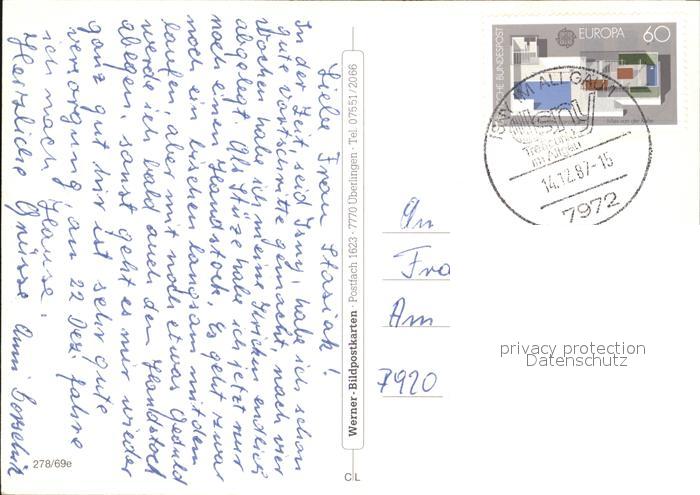 Liebe Frau Stasiak!
In der Zeit seid Isny, habe ich schon
gute Vortschritte gemacht, nach vier
Wochen habe ich meine Krücken endlich
abgelegt. Als Stütze habe ich jetzt nur
noch einen Handstock. Es geht zwar
noch ein bischen langsam mit dem
laufen, aber mit noch etwas Geduld
werde ich bald auch den Handstock
ablegen, sonst geht es mir wieder
ganz gut hir ist sehr gute
versorgung, am 22 Dez. fahre
ich nach Hause.
Herzliche Grüsse Anni
278/69e
Werner-Bildpostkarten · Postfach 1623 · 7770 Überlingen · Tel. 07551/2066
CL
DEUTSCHE BUNDESPOST
EUROPA 60
ISNY IM ALLGÄU
Isny
14.12.87-15
7972
An
Fra
Am
7920
privacy protection
Datenschutz